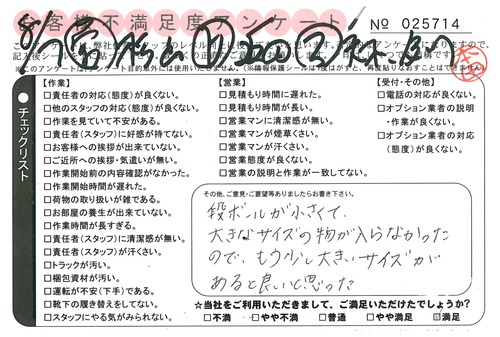 お客様不満足度アンケート
No 025714
【作業】
□責任者の対応(態度)が良くない。
□他のスタッフの対応(態度)が良くない。
□作業を見ていて不安がある。
□責任者(スタッフ)に好感が持てない。
□お客様への挨拶が出来ていない。
□ご近所への挨拶・気遣いが無い。
□作業開始前の内容確認がなかった。
□作業開始時間が遅れた。
□荷物の取り扱いが雑である。
□お部屋の養生が出来ていない。
□作業時間が長すぎる。
□責任者(スタッフ)に清潔感が無い。
□責任者(スタッフ)が汗くさい。
□トラックが汚い。
□梱包資材が汚い。
□運転が不安(下手)である。
□靴下の履き替えをしてない。
□スタッフにやる気がみられない。
【営業】
□見積もり時間に遅れた。
□見積もり時間が長い。
□営業マンに清潔感が無い。
□営業マンが煙草くさい。
□営業マンが汗くさい。
□営業態度が良くない。
□営業の説明と作業が一致してない。
【受付・その他】
□電話の対応が良くない。
□オプション業者の説明
・作業が良くない。
□オプション業者の対応
(態度)が良くない。
チェックリスト
その他、ご意見・ご要望等ありましたらお書き下さい。
段ボールが小さくて、
大きなサイズの物が入らなかった
ので、もう少し大きいサイズが
あると良いと思った
☆当社をご利用いただきまして、ご満足いただけたでしょうか?
□不満 □やや不満 □普通 □やや満足 ☑満足